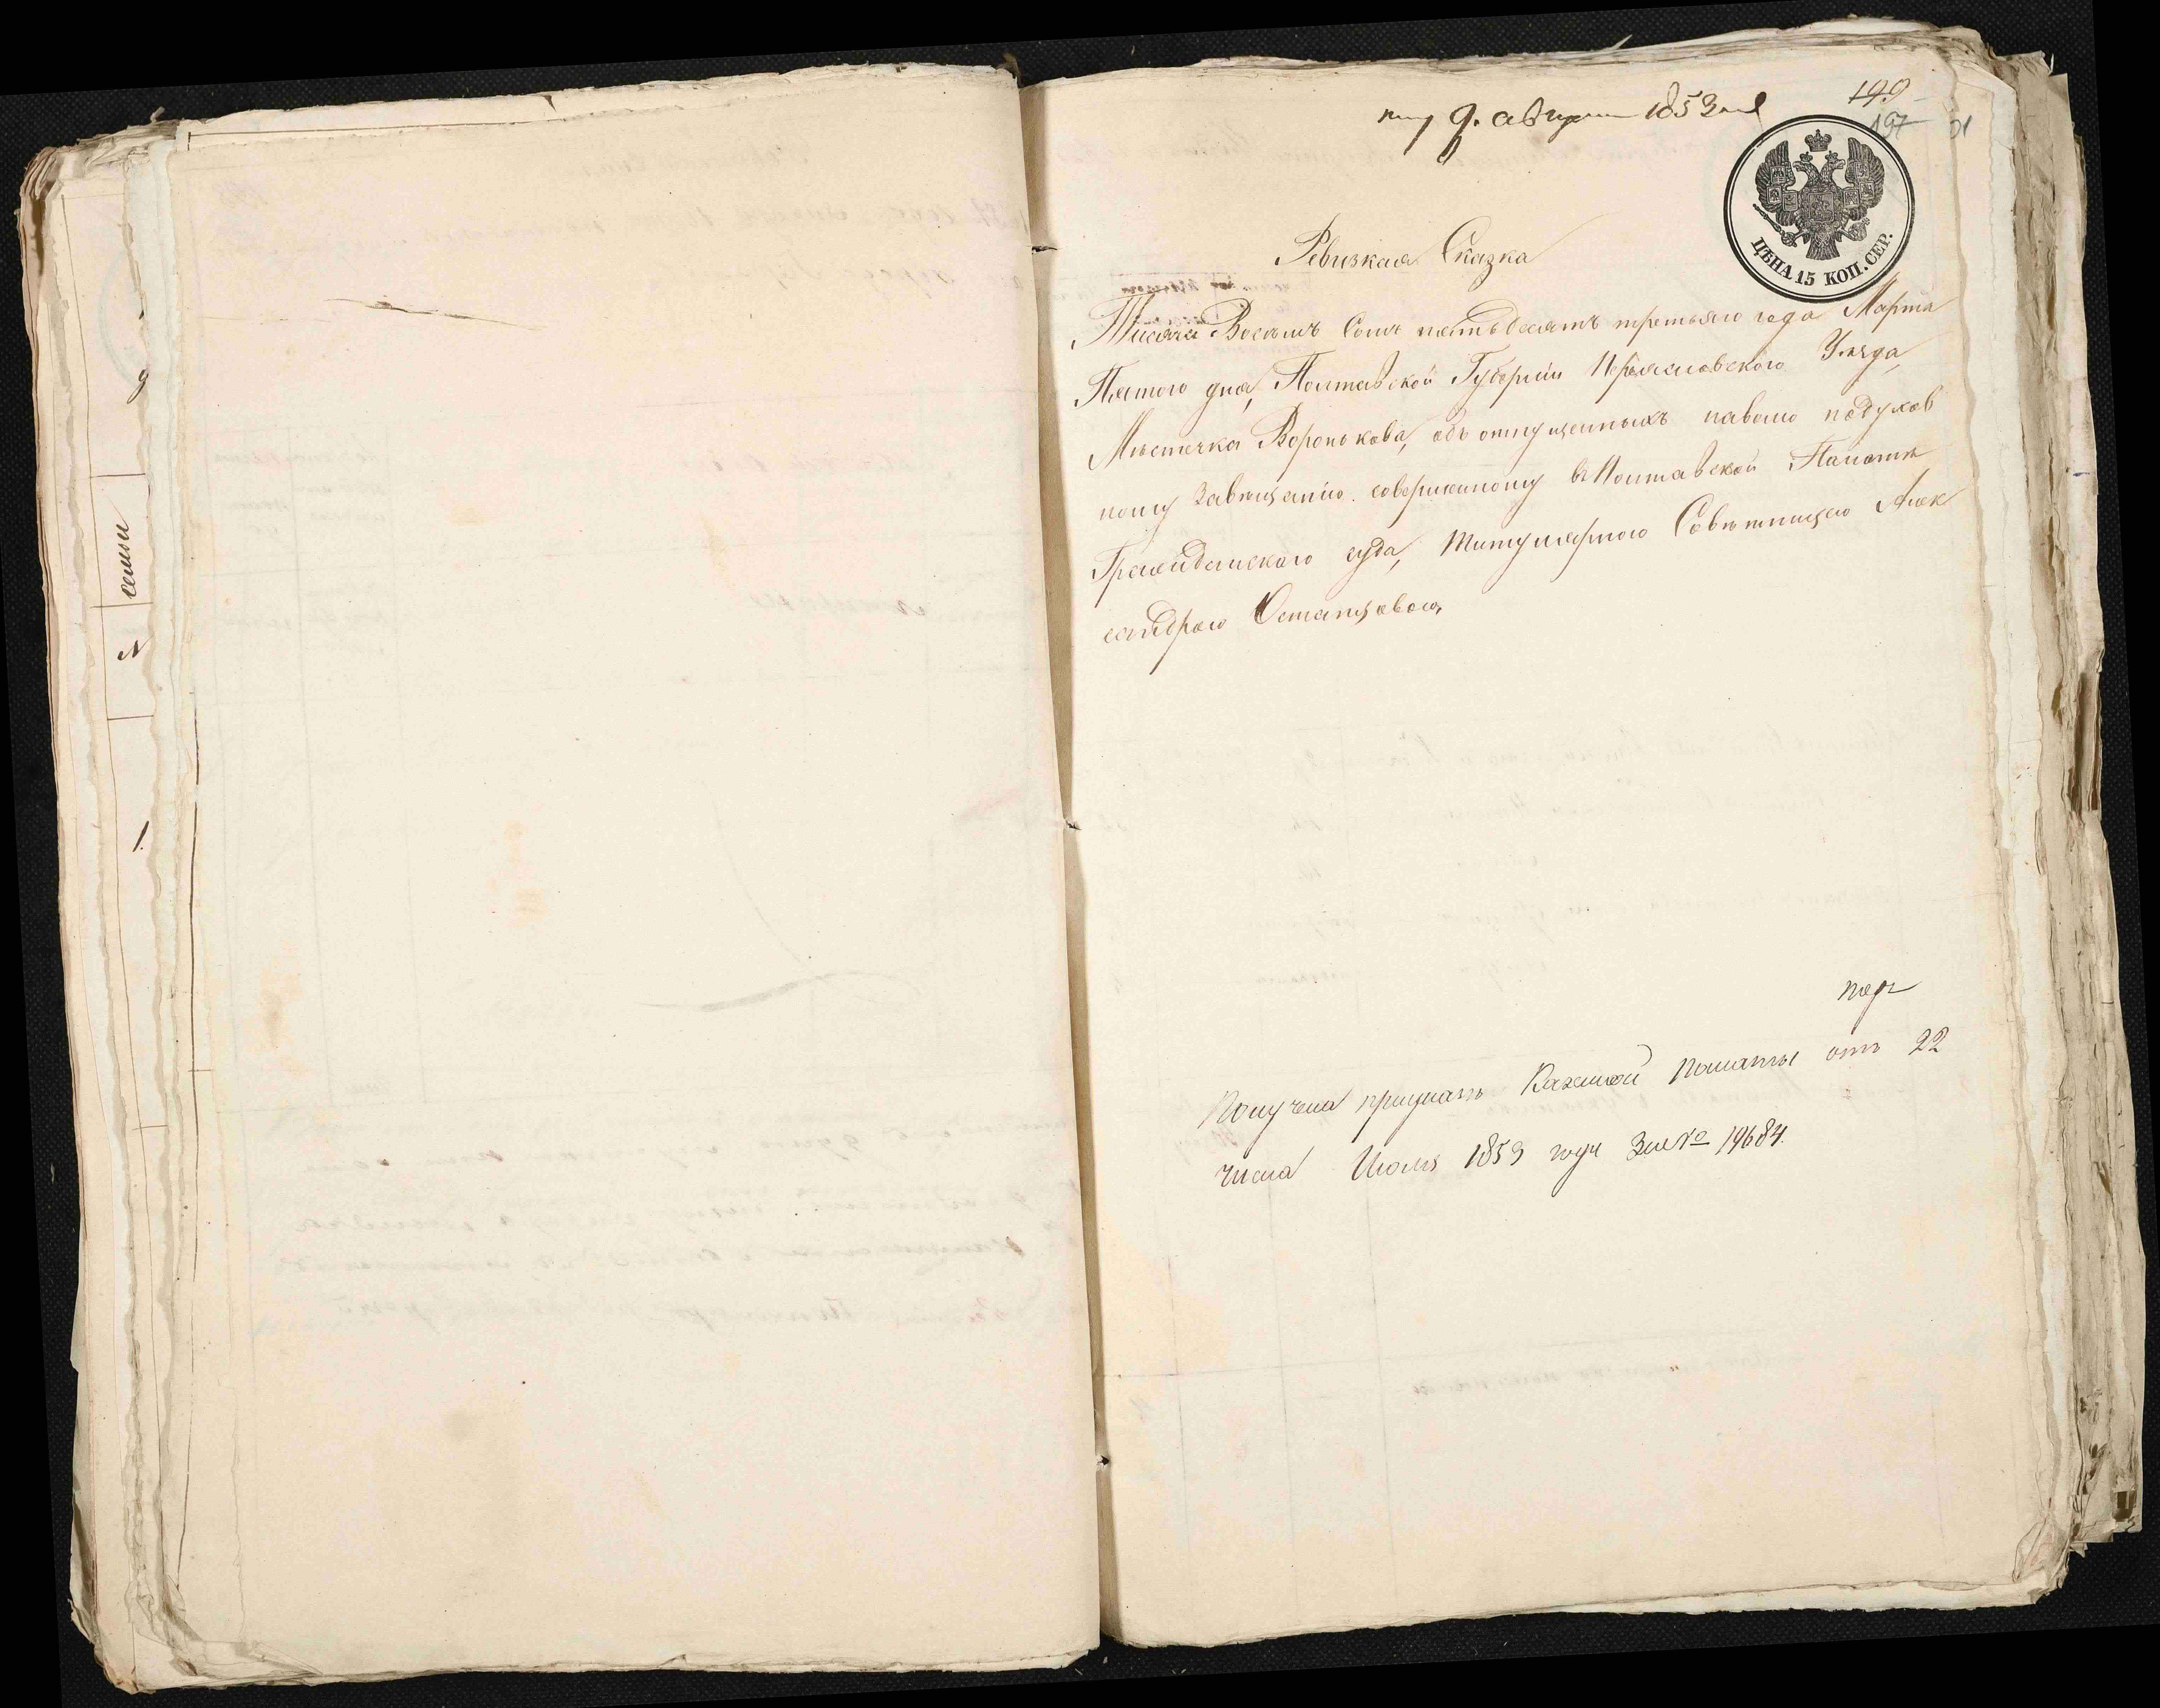 9
семьи
№
1.
пол 9. августа 1853 год
199
197
01
ЦѢНА 15 КОП. СЕР.
Ревизкая Сказка
Тисяча Восемъ Сотъ пятьдесятъ третьяго года Марта
Пятого дня, Полтавской Губерніи Переяславского Уѣзда,
Мѣстечка Воронькова, объ отпущенныхъ наволю подухов
ному завѣщанію совершенному вПолтавской Палатѣ
Гражданского суда, титулярного Совѣтницею Алек
сандрою Остапцовою,
Получена Казенной Палаты отъ 22
числа Июля 1853 года За № 19684.